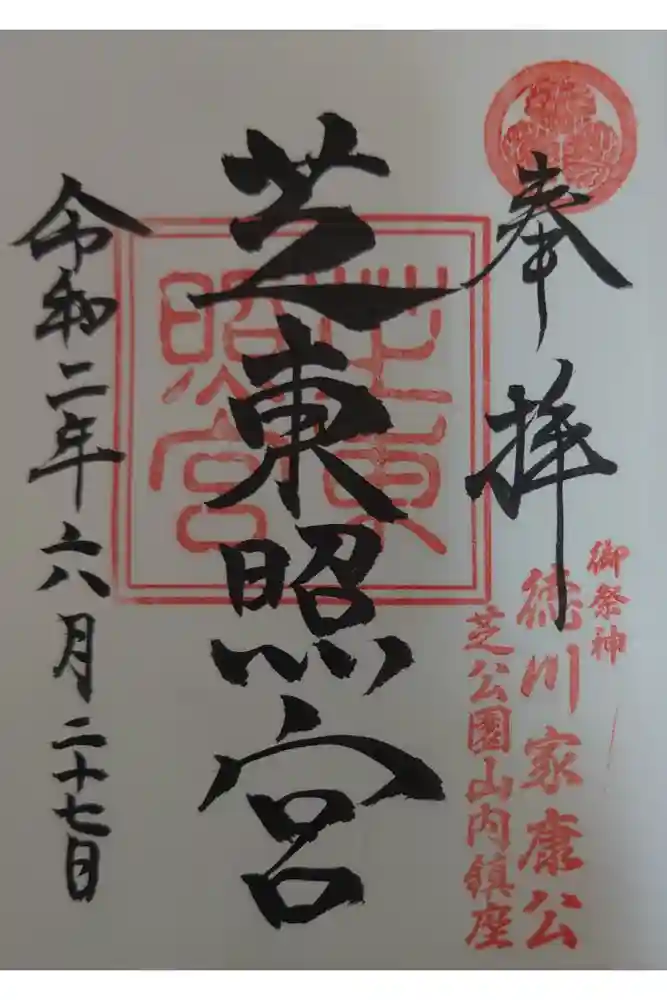 奉拝
御祭神
徳川家康公
芝公園山内鎮座
芝東照宮
芝東照宮
令和二年六月二十七日